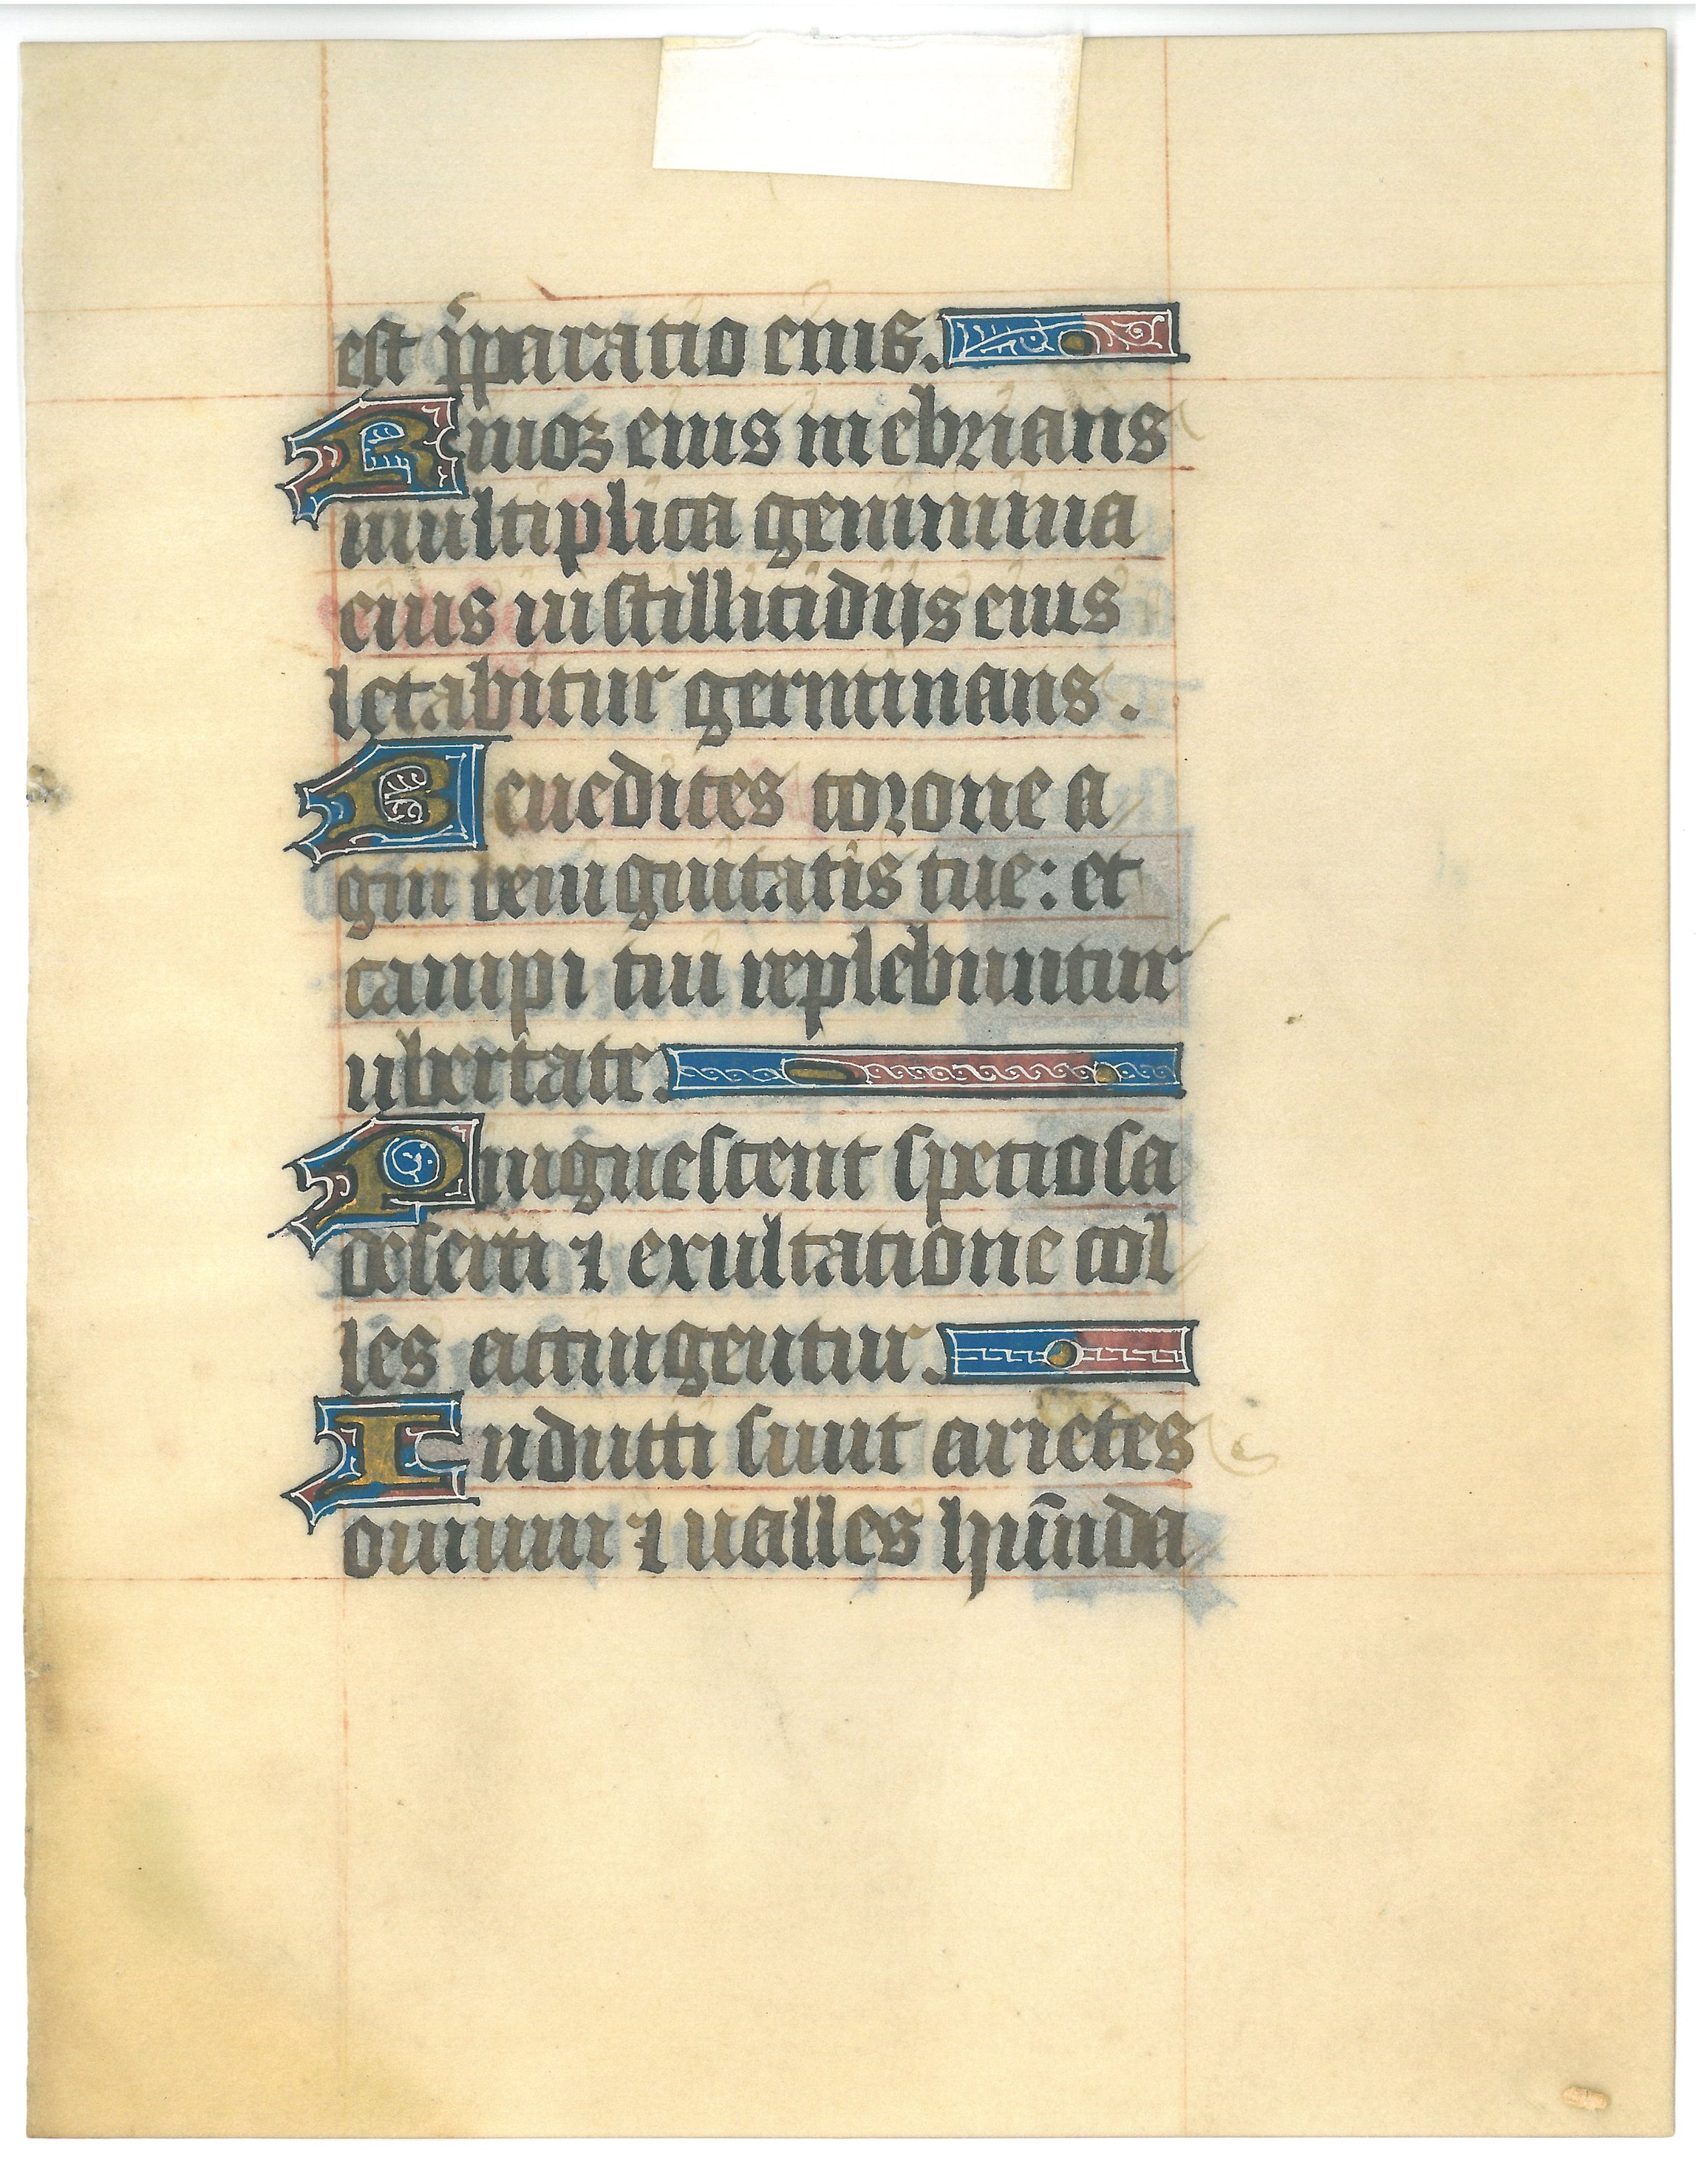 est p̃paratio eius.
Riuoꝝ eius inebrians
multiplica genimina
eius in stillicidiis eius
letabitur germinans.
Benedices corone a
gni benignitatis tue: et
campi tui replebuntur
ubertate.
Pinguescent speciosa
deserti ⁊ exultatione col
les accingentur.
Induti sunt arietes
ouium ⁊ ualles hũnda